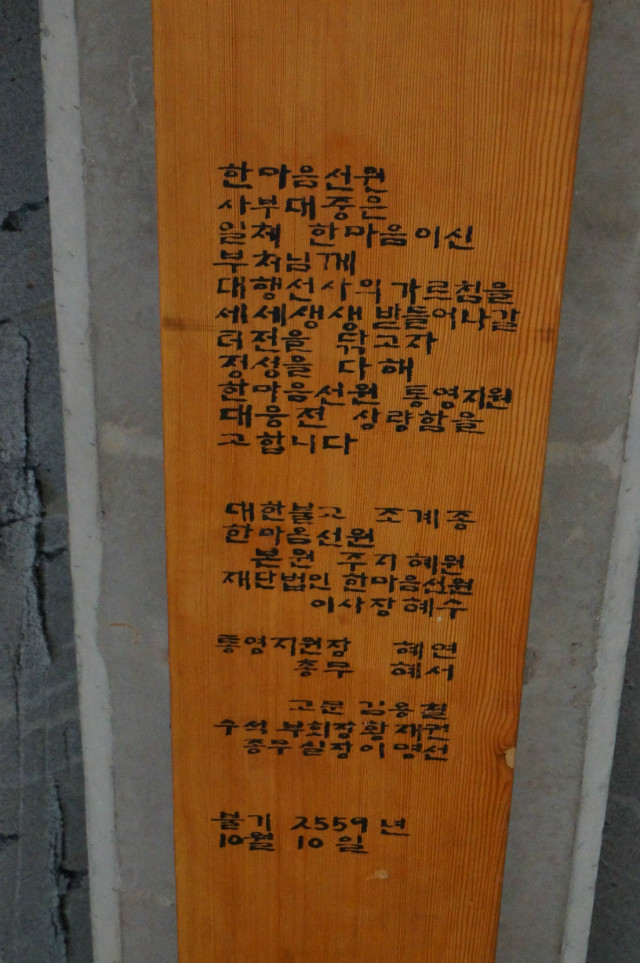 한마음선원
사부대중은
일체 한마음이신
부처님께
대행선사의가르침을
세세생생받들어나갈
터전을 닦고자
정성을 다해
한마음선원 통영지원
대웅전 상량함을
고합니다
대한불교 조계종
한마음선원
본원 주지혜원
재단법인 한마음선원
이사장혜수
통영지원장 혜연
총무 혜서
고문 김용철
수석부회장황재권
종무실장이영선
불기 2559년
10월 10일